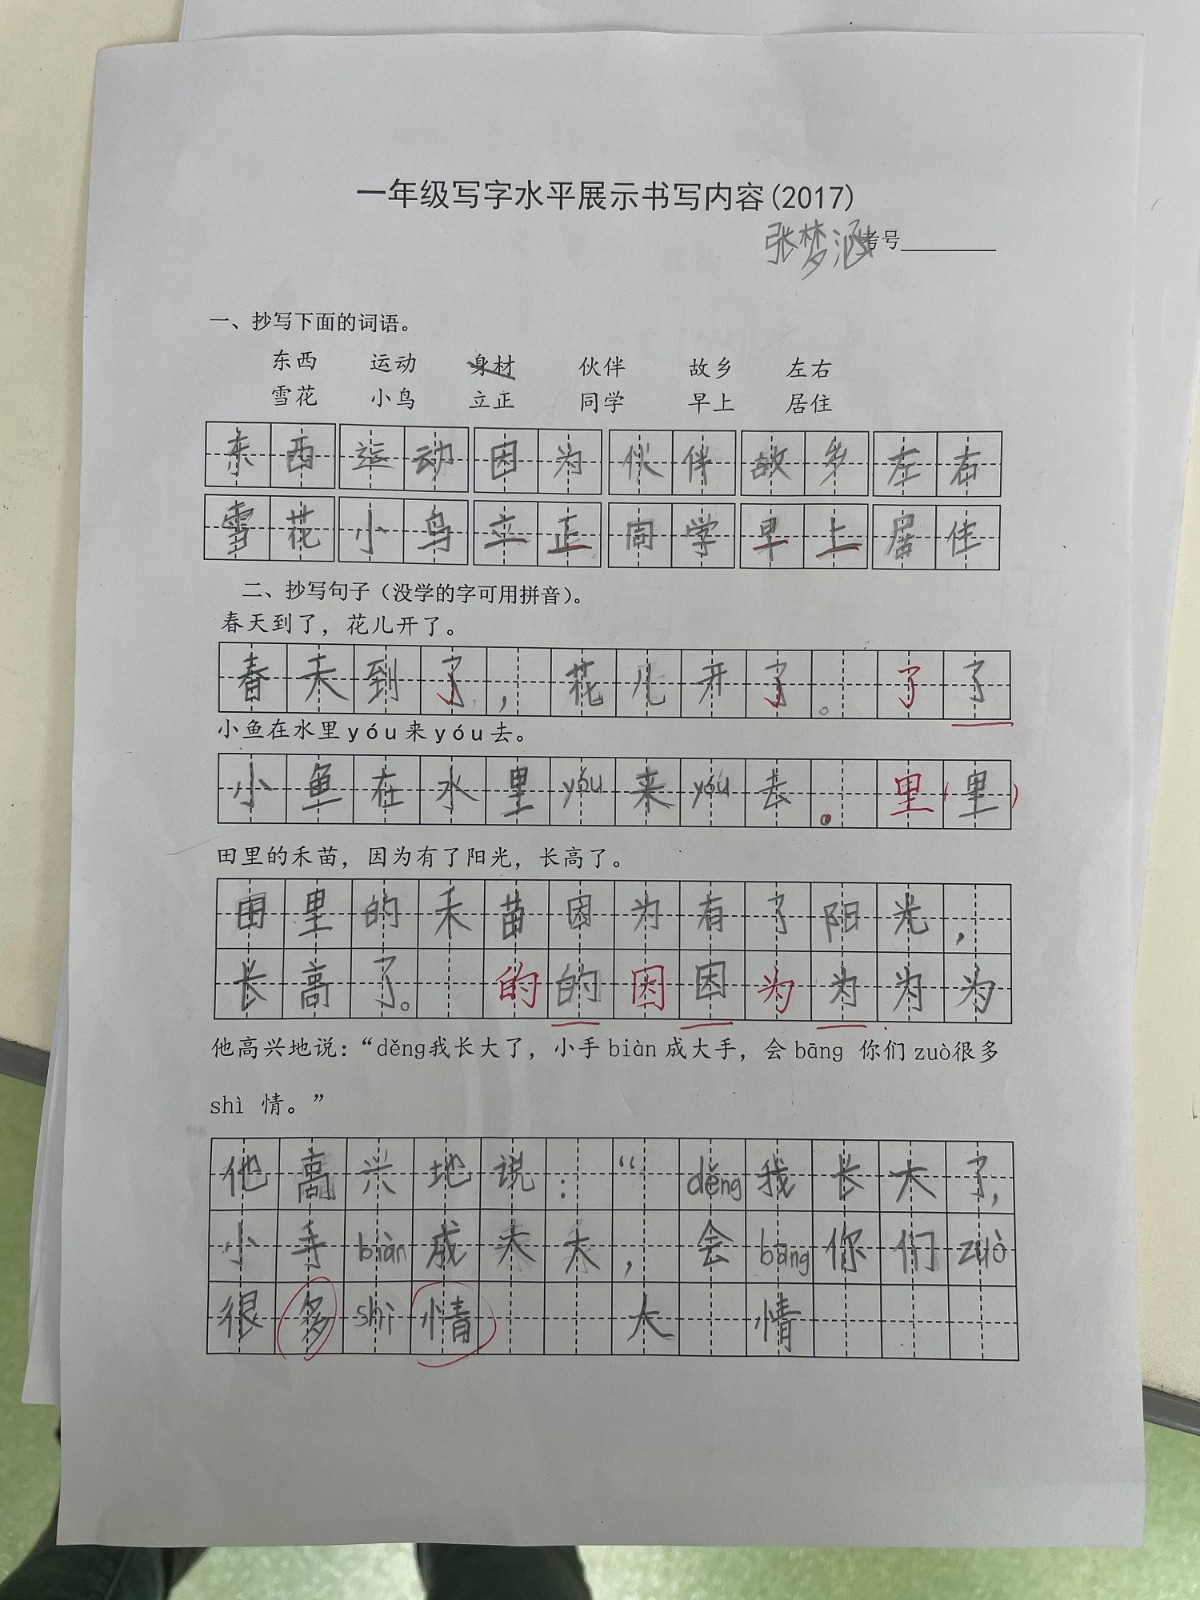 一年级写字水平展示书写内容(2017)
张梦涵 考号
一、抄写下面的词语。
东西 运动 身材 伙伴 故乡 左右
雪花 小鸟 立正 同学 早上 居住
东西运动因为伙伴故乡左右
雪花小鸟立正同学早上居住
二、抄写句子（没学的字可用拼音）。
春天到了，花儿开了。
春天到了，花儿开了。了了
小鱼在水里yóu来yóu去。
小鱼在水里yóu来yóu去。里(里)
田里的禾苗，因为有了阳光，长高了。
田里的禾苗因为有了阳光，
长高了。的的因因为为为为
他高兴地说：“děng我长大了，小手biàn成大手，会bāng 你们zuò很多
shì 情。”
他高兴地说：“děng我长大了，
小手biàn成大手，会bāng你们zuò
很多shì情 大 情